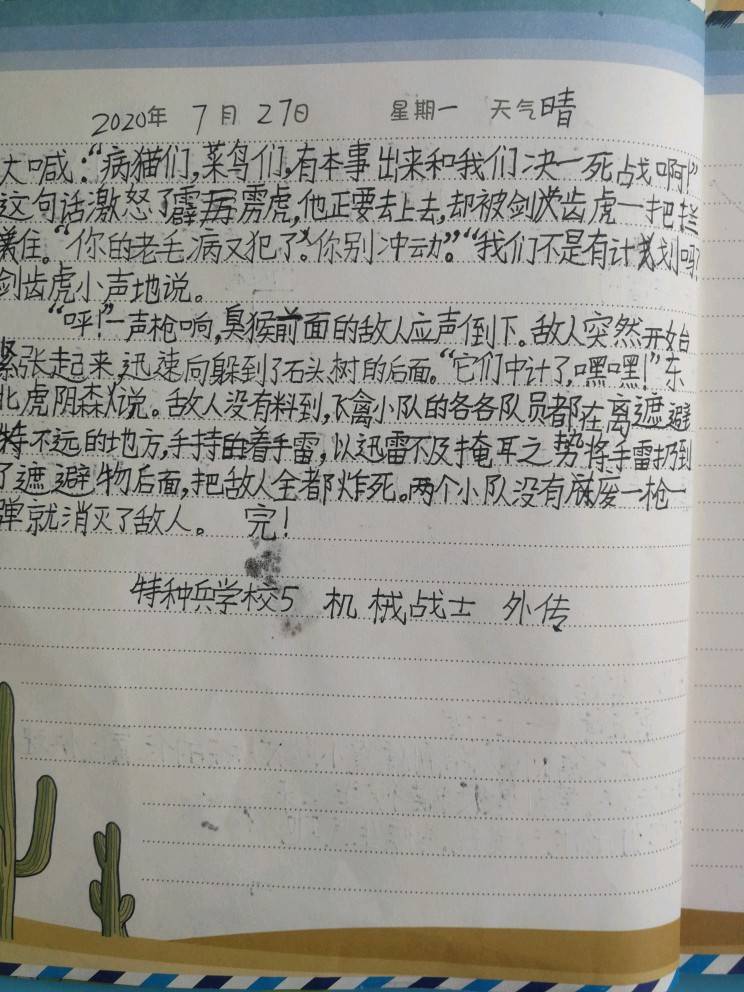 2020年 7月 27日 星期一 天气晴
大喊：“病猫们，菜鸟们，有本事出来和我们决一死战啊！”
这句话激怒了霹雳虎，他正要去上去，却被剑齿虎一把拦
住。“你的老毛病又犯了。你别冲动。”“我们不是有计划吗？
剑齿虎小声地说。
“呯！”一声枪响，臭猴前面的敌人应声倒下。敌人突然开始
紧张起来，迅速向躲到了石头、树的后面。“它们中计了，嘿嘿！”东
北虎阴森说。敌人没有料到，飞禽小队的各各队员都在离遮避
不远的地方，手持着手雷，以迅雷不及掩耳之势将手雷扔到
了遮避物后面，把敌人全都炸死。两个小队没有废一枪一
弹就消灭了敌人。 完！
特种兵学校5 机械战士 外传